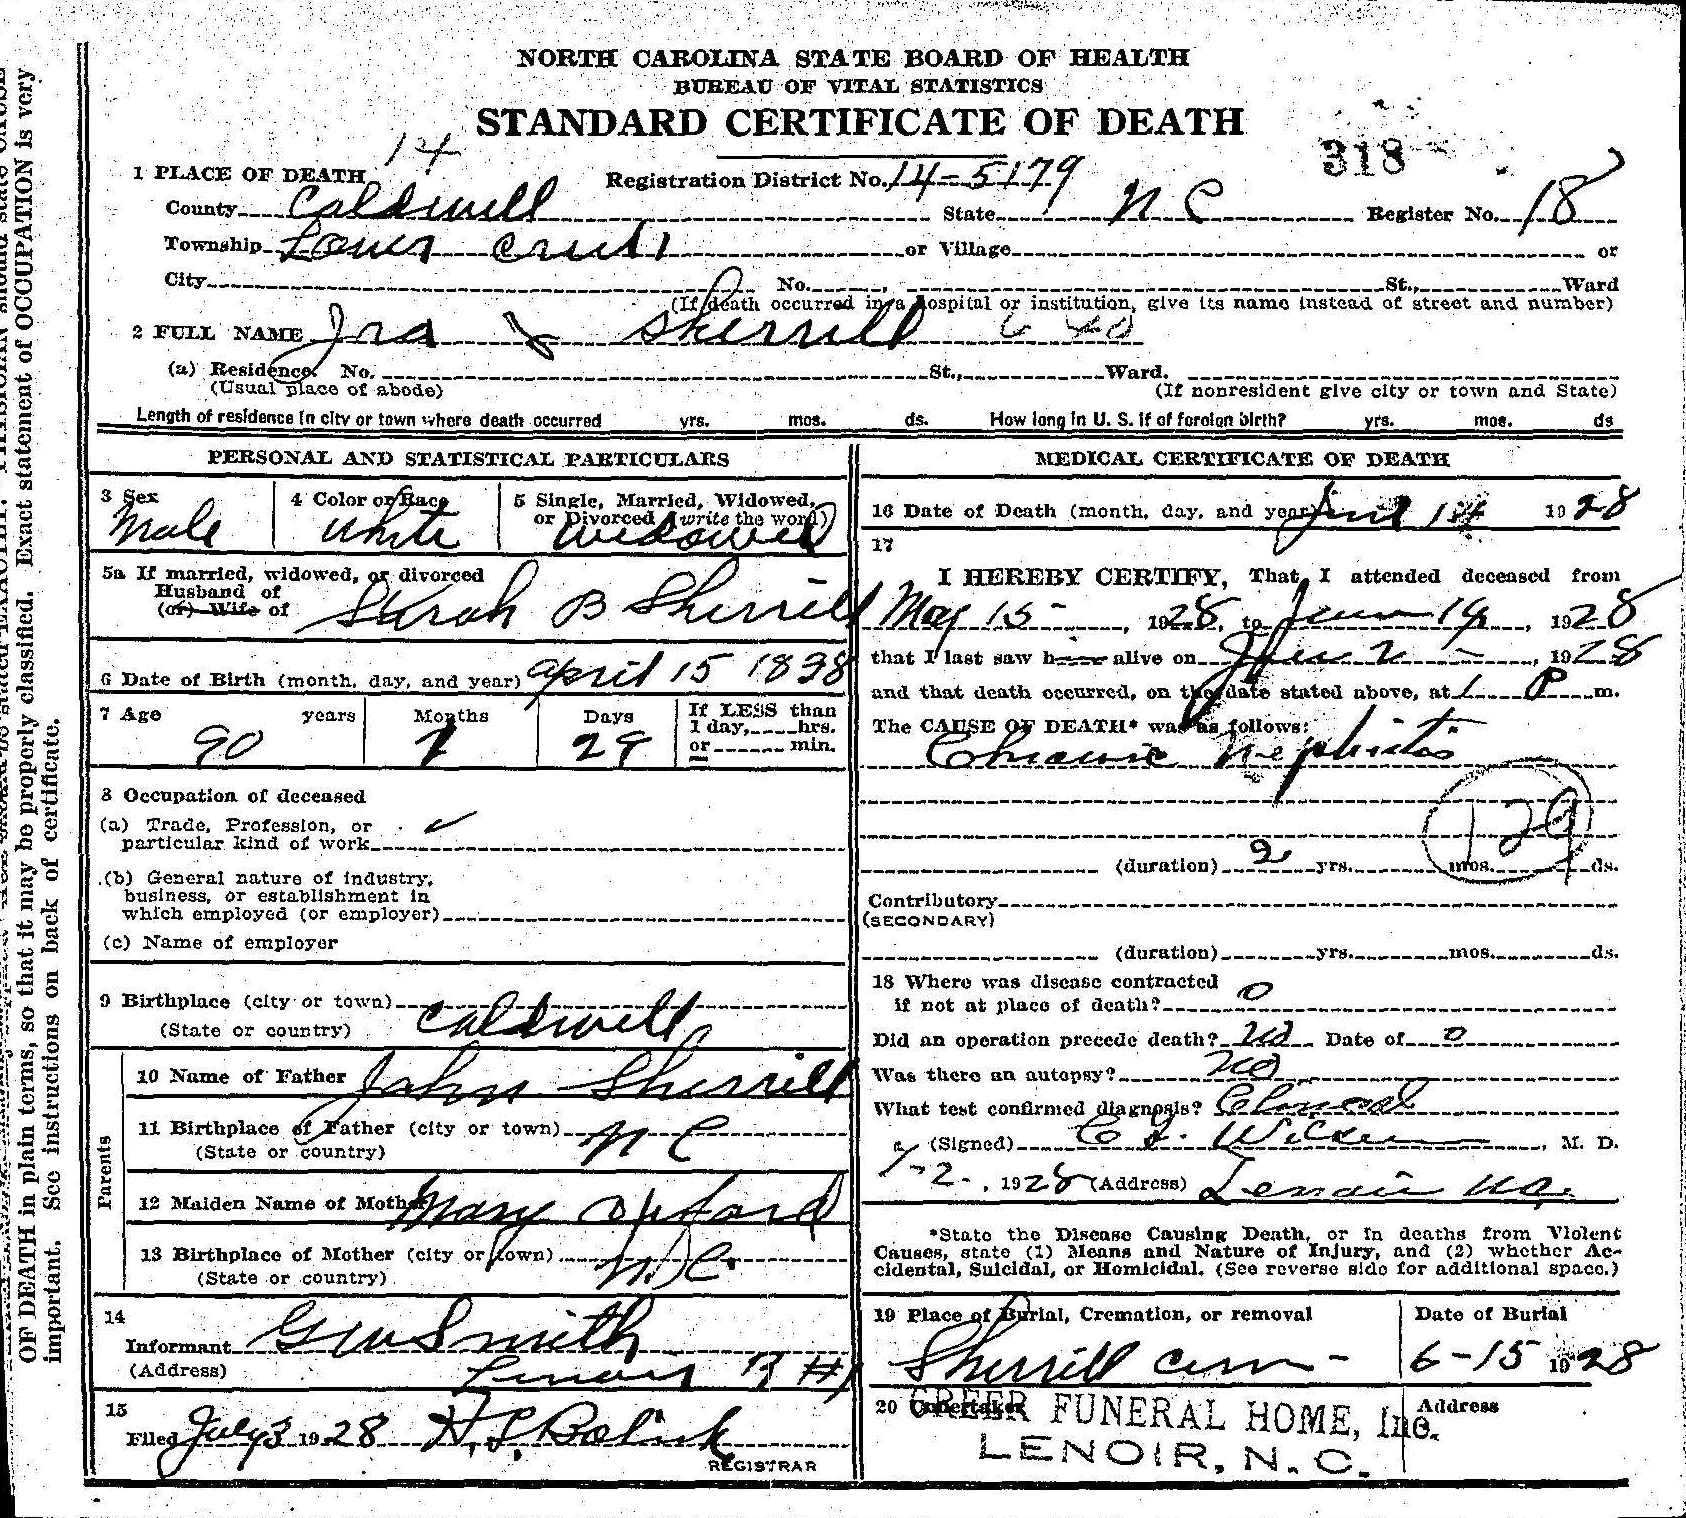 OF DEATH in plain terms, so that it may be properly classified. Exact statement of OCCUPATION is very
important. See instructions on back of certificate.
NORTH CAROLINA STATE BOARD OF HEALTH
BUREAU OF VITAL STATISTICS
STANDARD CERTIFICATE OF DEATH
318
14
1 PLACE OF DEATH Registration District No. 14-5179
County Caldwell State N C Register No. 18
Township Lower Creek or Village or
City No. , St., Ward
(If death occurred in a hospital or institution, give its name instead of street and number)
2 FULL NAME Ira J Sherrill
(a) Residence. No. St., Ward.
(Usual place of abode) (If nonresident give city or town and State)
Length of residence in city or town where death occurred yrs. mos. ds. How long in U. S. if of foreign birth? yrs. mos. ds
PERSONAL AND STATISTICAL PARTICULARS
3 Sex
Male
4 Color or Race
White
5 Single, Married, Widowed,
or Divorced (write the word)
Widowed
5a If married, widowed, or divorced
Husband of
(or) Wife of Sarah B Sherrill
6 Date of Birth (month, day, and year) April 15 1838
7 Age years Months Days
90 1 29
If LESS than
1 day, hrs.
or min.
8 Occupation of deceased
(a) Trade, Profession, or
particular kind of work
(b) General nature of industry,
business, or establishment in
which employed (or employer)
(c) Name of employer
9 Birthplace (city or town)
(State or country) Caldwell
Parents
10 Name of Father John Sherrill
11 Birthplace of Father (city or town) N C
(State or country)
12 Maiden Name of Mother Mary Oxford
13 Birthplace of Mother (city or town) N C
(State or country)
14
Informant G W Smith
(Address) Lenoir R #1
15
Filed July 3 1928 H. S. Bolick
REGISTRAR
MEDICAL CERTIFICATE OF DEATH
16 Date of Death (month, day, and year) June 14 1928
17
I HEREBY CERTIFY, That I attended deceased from
May 15 , 1928, to June 14 , 1928
that I last saw h alive on June 2 , 1928
and that death occurred, on the date stated above, at 1 P m.
The CAUSE OF DEATH* was as follows:
Chronic Nephritis
129
(duration) 2 yrs. mos. ds.
Contributory
(SECONDARY)
(duration) yrs. mos. ds.
18 Where was disease contracted
if not at place of death? 0
Did an operation precede death? No Date of 0
Was there an autopsy? No
What test confirmed diagnosis? Clinical
(Signed) , M. D.
7-2- , 1928 (Address) Lenoir N.C.
*State the Disease Causing Death, or in deaths from Violent
Causes, state (1) Means and Nature of Injury, and (2) whether Ac-
cidental, Suicidal, or Homicidal. (See reverse side for additional space.)
19 Place of Burial, Cremation, or removal
Sherrill Cem
Date of Burial
6-15 1928
20 Undertaker
GREER FUNERAL HOME, Inc.
LENOIR, N. C.
Address